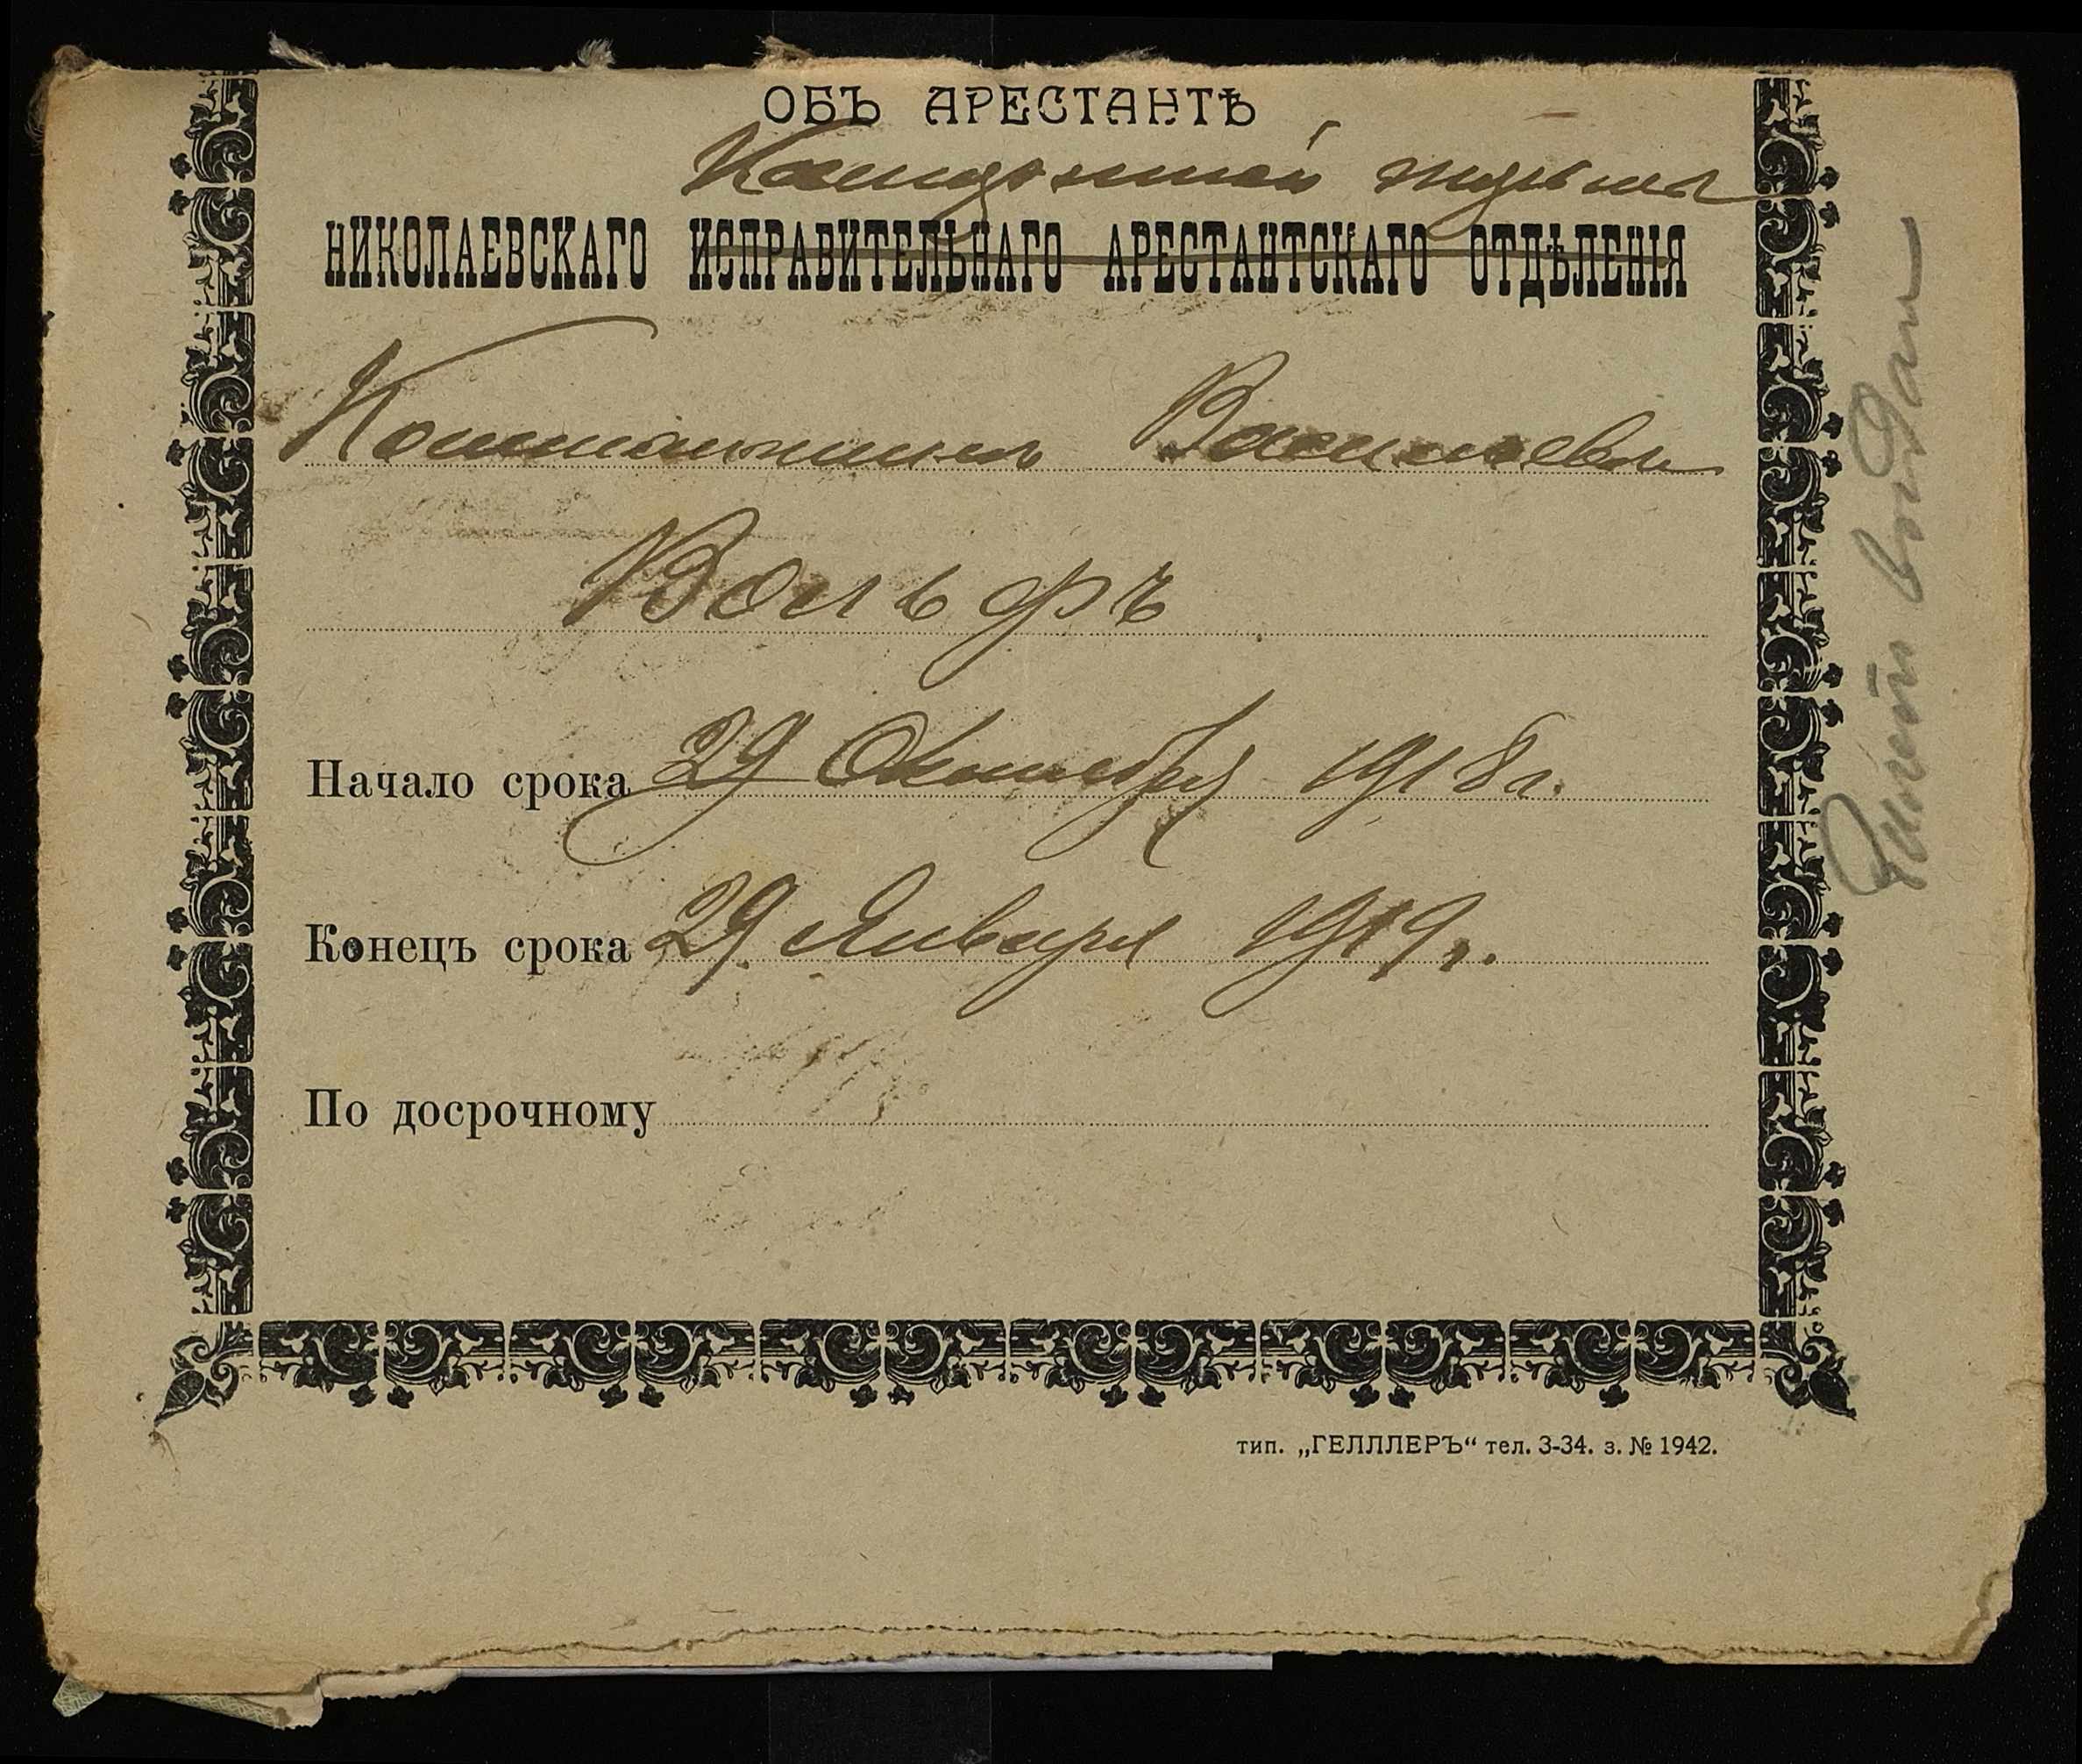 ОБЪ АРЕСТАНТѢ
тюрьмы
НИКОЛАЕВСКАГО ИСПРАВИТЕЛЬНАГО АРЕСТАНТСКАГО ОТДѢЛЕНІЯ
Константинъ Васильевъ
Вольфъ
Начало срока 29 Октября 1918 г.
Конецъ срока 29 Января 1919 г.
По досрочному
тип. „ГЕЛЛЛЕРЪ“ тел. 3-34. з. № 1942.
билетъ выдан